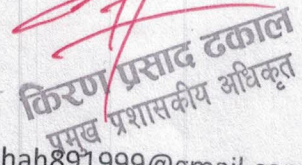 किरण प्रसाद ढकाल
प्रमुख प्रशासकीय अधिकृत
hah891999@gmail.co